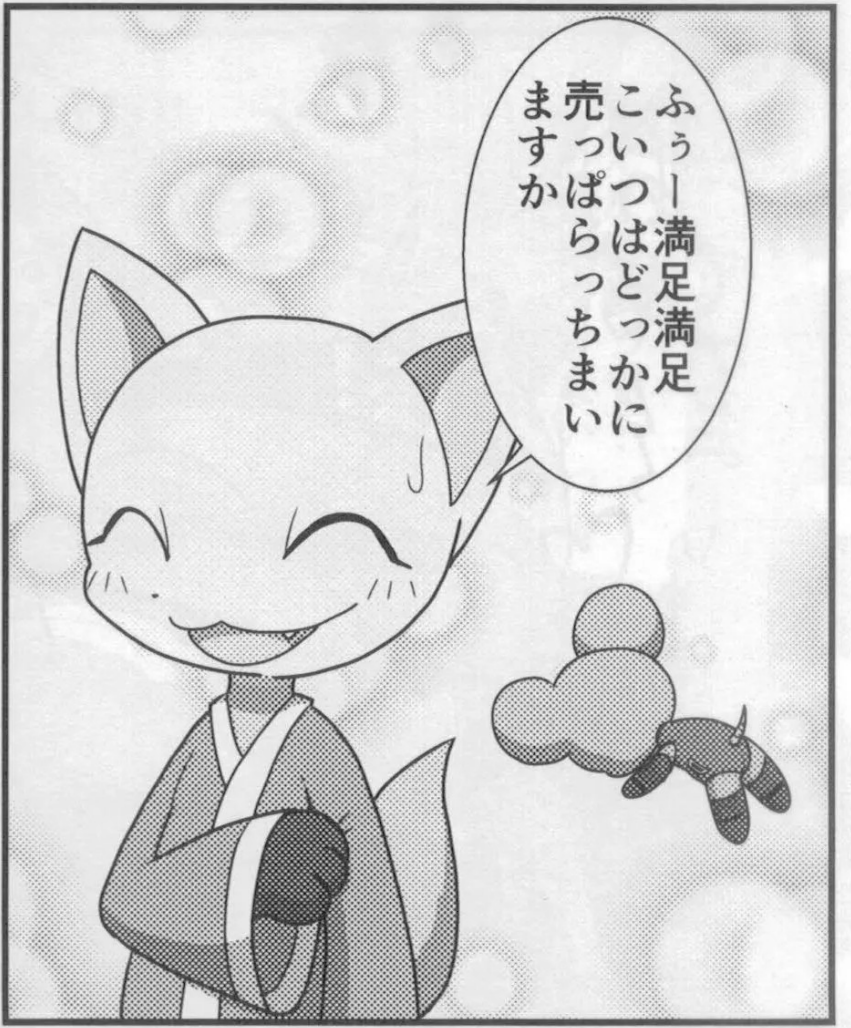 ふぅー満足満足
こいつはどっかに
売っぱらっちまい
ますか